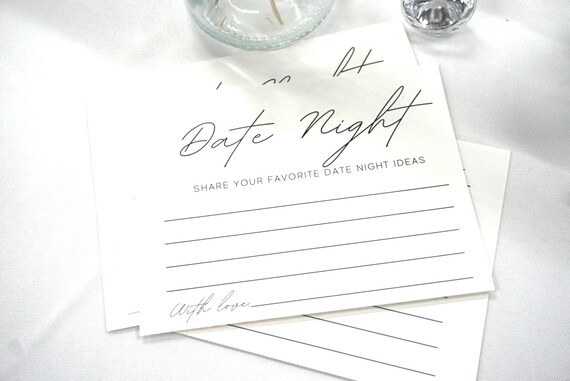 Date Night
SHARE YOUR FAVORITE DATE NIGHT IDEAS
With love,